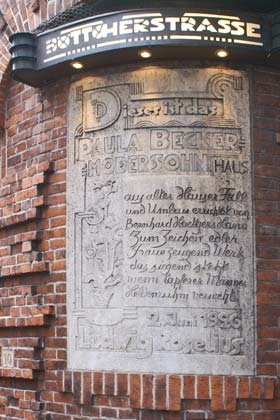 BÖTTCHERSTRASSE
Dieses ist das
PAULA BECKER
MODERSOHN HAUS
aus alter Häuser Fall
und Umbau errichtet von
Bernhard Hoetgers Hand
Zum Zeichen edler
Frau zeugend Werk
das siegend steht
wenn tapferer Männer
Heldenruhm verweht
2. Juni 1926
Ludwig Roselius